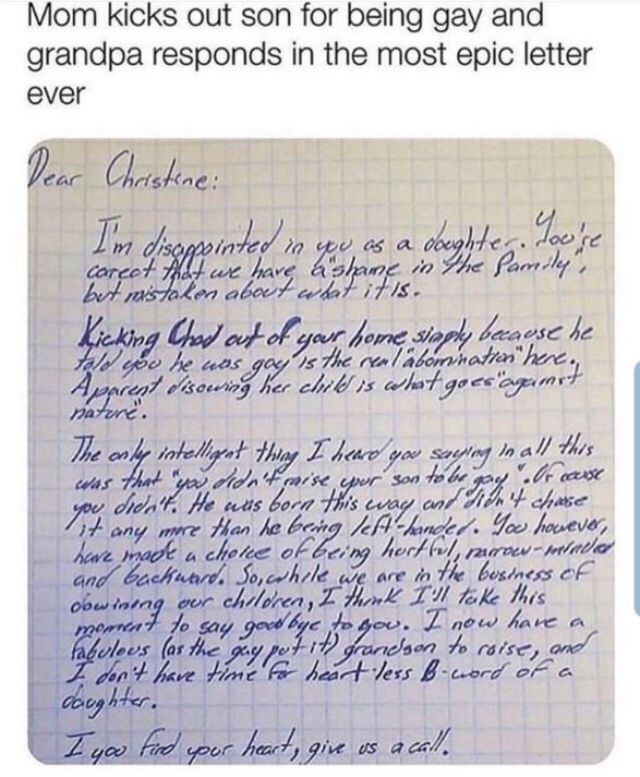 Mom kicks out son for being gay and
grandpa responds in the most epic letter
ever
Dear Christine:
I'm disappointed in you as a daughter. You're
correct that we have a "shame in the family",
but mistaken about what it is.
Kicking Chad out of your home simply because he
told you he was gay is the real "abomination" here.
A parent disowing her child is what goes "against
nature".
The only intelligent thing I heard you saying in all this
was that "you didn't raise your son to be gay". Of couse
you didn't. He was born this way and didn't choose
it any more than he being left-handed. You however,
have made a choice of being hurtful, narrow-minded
and backward. So, while we are in the business of
dowining our children, I think I'll take this
moment to say goodbye to you. I now have a
fabulous (as the gay put it) grandson to raise, and
I don't have time for heart-less B-word of a
daughter.
I you find your heart, give us a call.